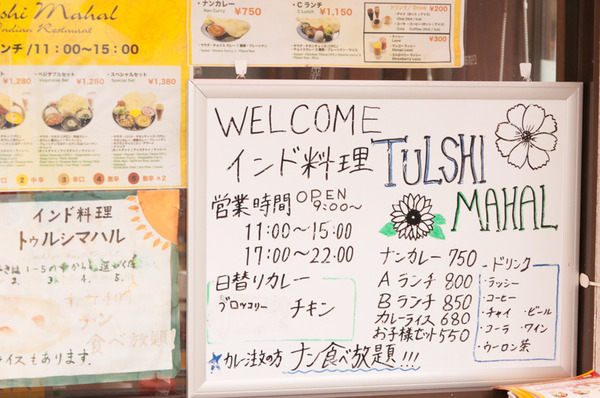 shi Mahal
Indian Restaurant
ンチ/11:00〜15:00
ナンカレー
Nan Curry
¥750
Cランチ
C Lunch
¥1,150
ドリンク Drink ¥200
¥300
¥1,280
ベジタブルセット
Vegetable Set
¥1,280
スペシャルセット
Special Set
¥1,380
2 中辛 3 辛口 4 激辛 5 激辛×2
インド料理
トゥルシマハル
2. 3. 4. 5.
ナン
食べ放題
ライスもあります.
WELCOME
インド料理 TULSHI
MAHAL
営業時間 OPEN
9:00〜
11:00〜15:00
17:00〜22:00
日替りカレー
ブロッコリー チキン
ナンカレー 750
Aランチ 800
Bランチ 850
カレーライス 680
お子様セット 550
・ドリンク
・ラッシー
・コーヒー
・チャイ ・ビール
・コーラ ・ワイン
・ウーロン茶
カレー注文の方 ナン食べ放題!!!